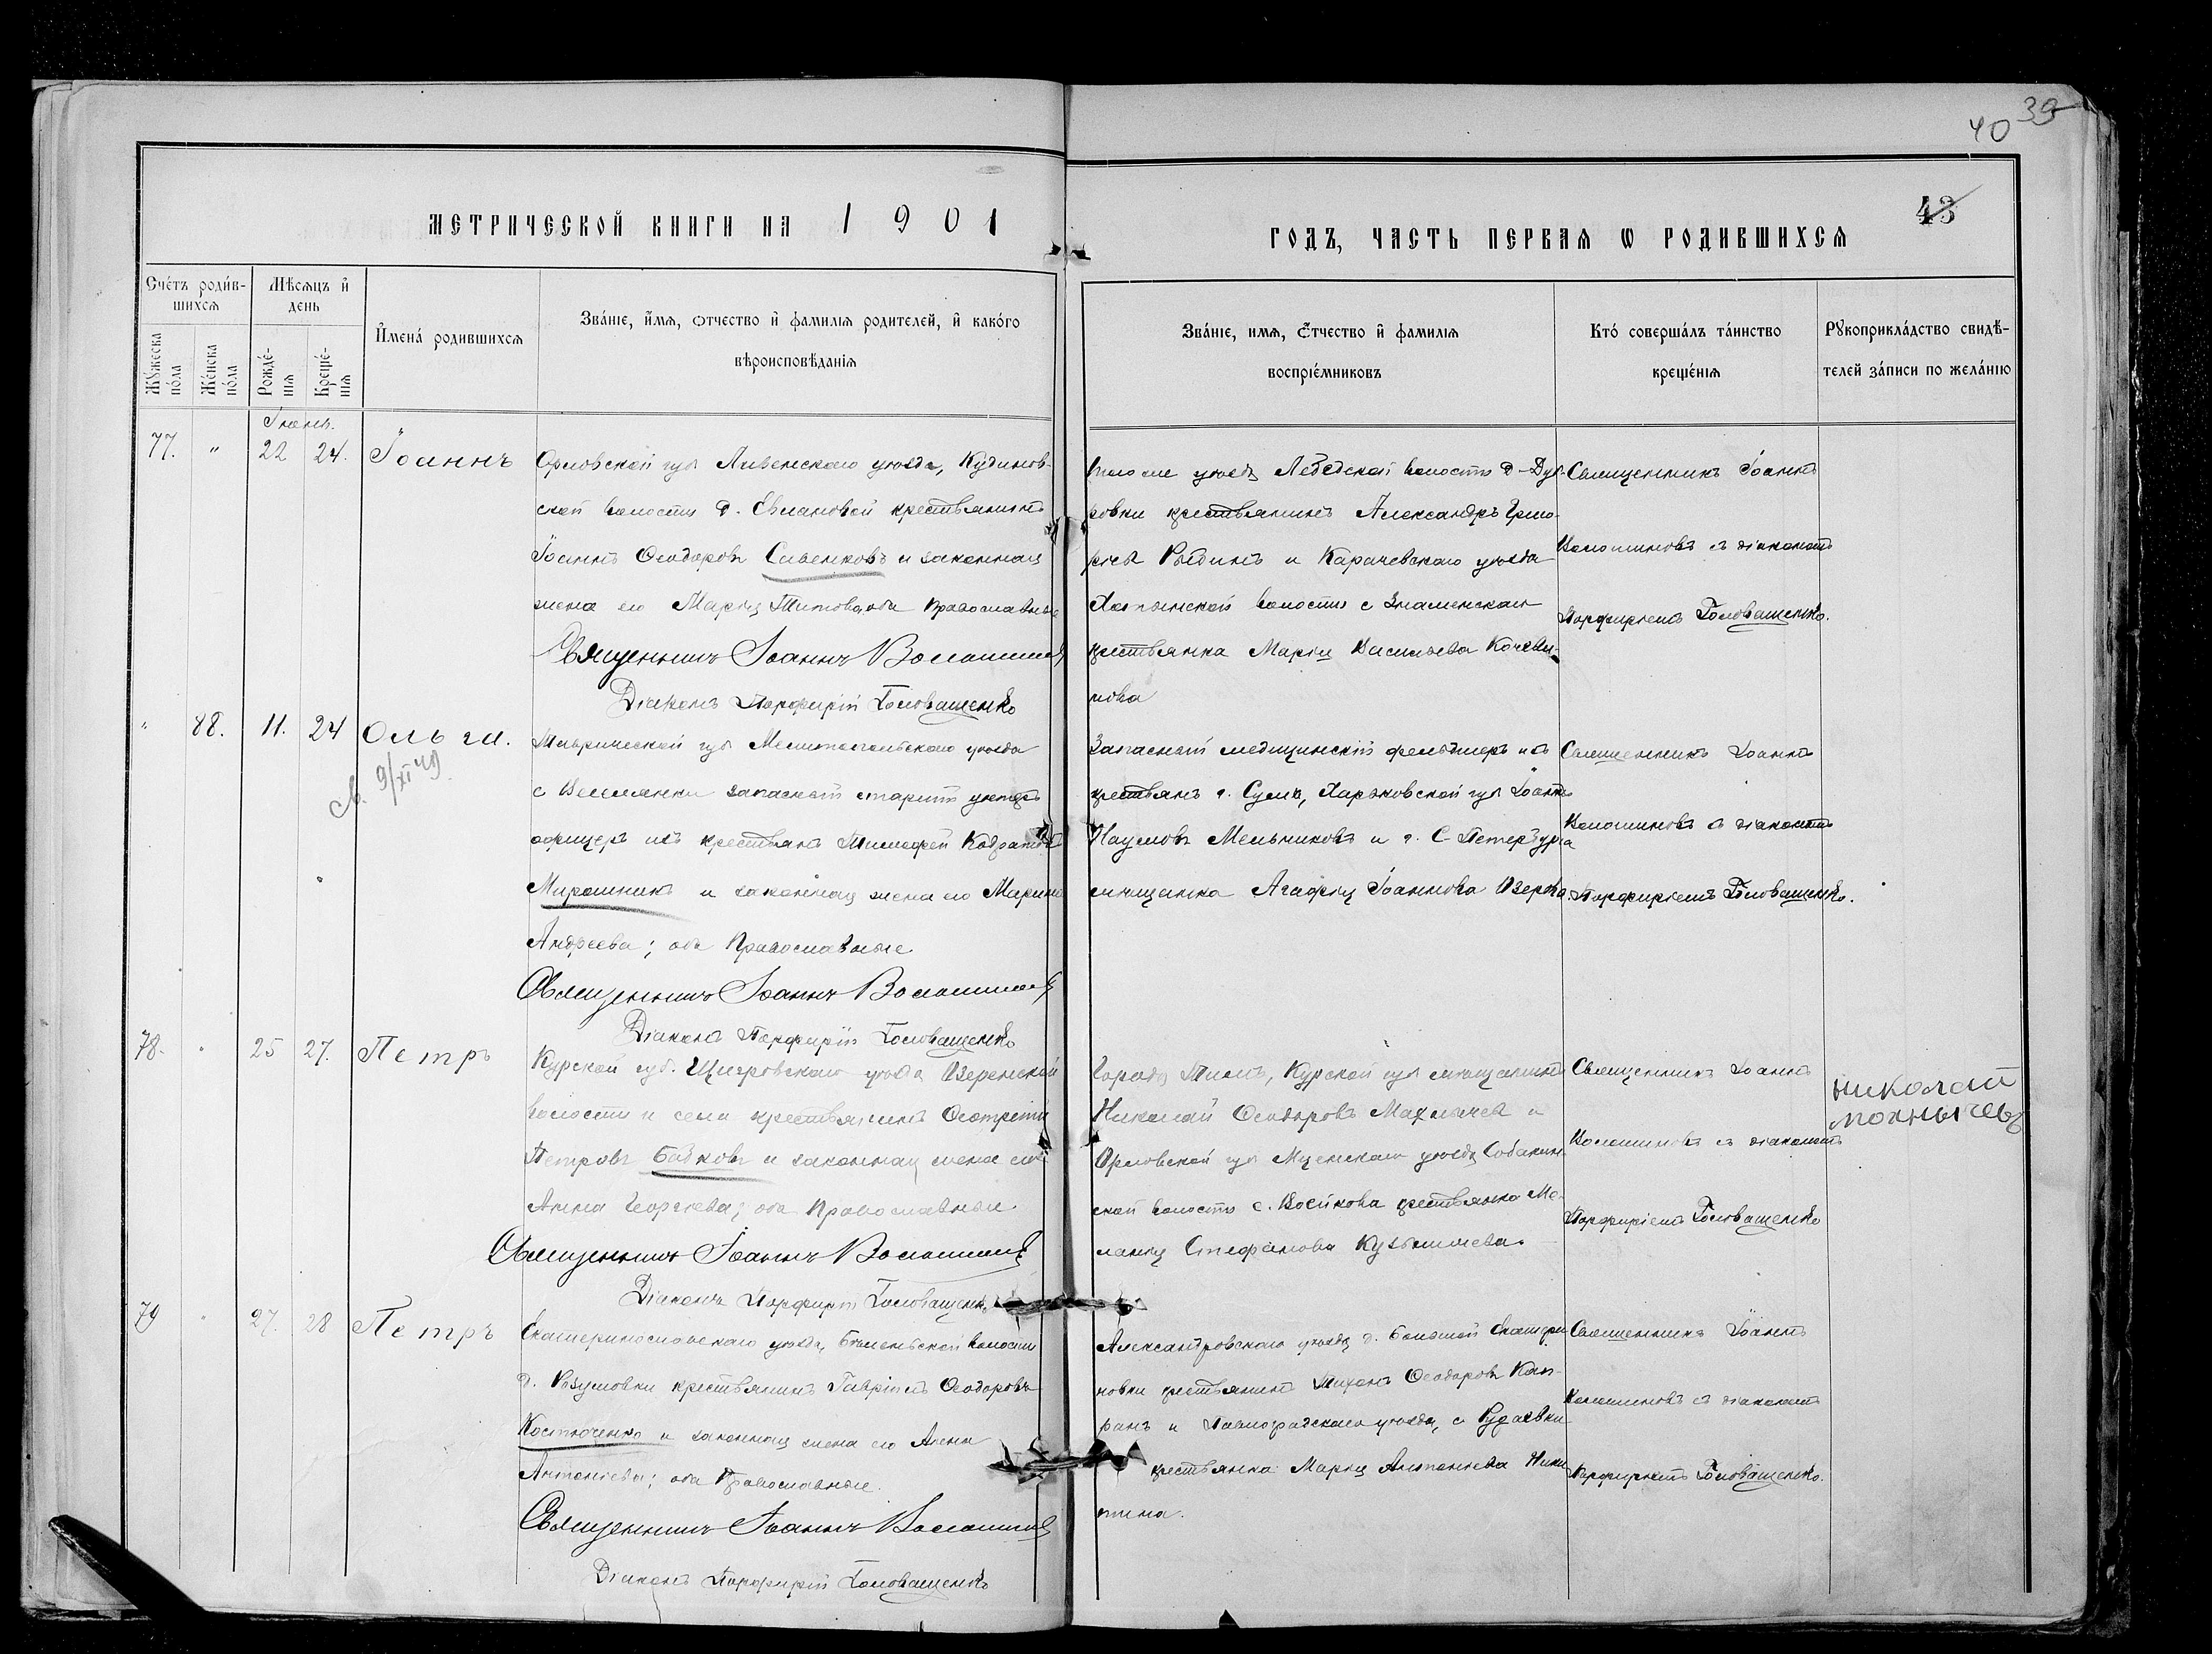 40 39
43
МЕТРИЧЕСКОЙ КНИГИ НА 1901
ГОДЪ, ЧАСТЬ ПЕРВАЯ Ѡ РОДИВШИХСЯ
Счётъ роди́в-
шихся
Мѣсяцъ и҆
день
Мꙋ́жеска
по́ла
Же́нска
по́ла
Рожде́-
нія
Креще́-
нія
И҆мена́ родившихся
Зва́ніе, и҆́мя, ѻтчество и҆ фамилія родителей, и҆ како́го
вѣроисповѣданія
Зва́ніе, имя, ѻ҆́тчество и҆ фамилія
воспріе́мниковъ
Кто́ соверша́лъ та́инство
креще́нія
Рꙋкоприкла́дство свидѣ́-
телей за́писи по жела́нію
Іюнь.
77. " 22 24. Іоаннъ
Орловской губ Ливенскаго уѣзда, Кудинов-
ской волости д. Евлановой крестьянинъ
Іоаннъ Ѳеодоровъ Савенковъ и законная
жена его Марія Титова, оба православные
Священникъ Іоаннъ Волошинов
Діаконъ Порфирій Головащенко
того же уѣзда Лебедской волости д-Дуб-
ровки крестьянинъ Александръ Григо-
рьев Рыбинъ и Карачевскаго уѣзда
волости с Знаменскаго
крестьянка Марія Васильева
нова
Священникъ Іоаннъ
Волошиновъ съ діакономъ
Порфиріемъ Головащенко.
" 88. 11. 24 Ольга.
св. 9/XI 49
Таврической губ Мелитопольскаго уѣзда
с Веселянки запасный старшій унтеръ
офицеръ изъ крестьянъ Тимофей Кодратов
Мирошникъ и законная жена его Марина
Андреева; оба Православные
Священникъ Іоаннъ Волошинов
Діаконъ Порфирій Головащенко
Запасный медицинскій фельдшеръ изъ
крестьянъ г. Сумъ, Харьковской губ Іоаннъ
Наумовъ Мельниковъ и г. С-Петербурга
мѣщанка Агафія Іоаннова Озерова.
Священникъ Іоаннъ
Волошиновъ съ діакономъ
Порфиріемъ Головащенко.
78. " 25 27. Петръ
Курской губ. Щигровскаго уѣзда Озеренской
волости и села крестьянинъ
Петровъ Бабковъ и законная жена его
Анна Георгіева; оба Православные
Священникъ Іоаннъ Волошинов
Діаконъ Порфирій Головащенко
Города Тимъ, Курской губ мѣщанинъ
Николай Ѳеодоровъ Махнычев и
Орловской губ Мценскаго уѣзда Собакин-
ской волости с. Воейкова крестьянка Ме-
ланія Стефанова Кузьмичева.
Священникъ Іоаннъ
Волошиновъ съ діакономъ
Порфиріемъ Головащенко
Николай
Мохнычевъ
79 " 27. 28 Петръ
Екатеринославскаго уѣзда, волости
д. Разумовки крестьянинъ Гавріилъ Ѳеодоровъ
Костюченко и законная жена его Анна
Антоніева; оба Православные.
Священникъ Іоаннъ Волошинов
Діаконъ Порфирій Головащенко
Александровскаго уѣзда д. Большой Екатери-
новки крестьянинъ Тихонъ Ѳеодоров Кап-
ранъ и Павлоградскаго уѣзда, с
крестьянка Марія Антоніева Ники-
тина.
Священникъ Іоаннъ
Волошиновъ съ діакономъ
Порфиріемъ Головащенко.